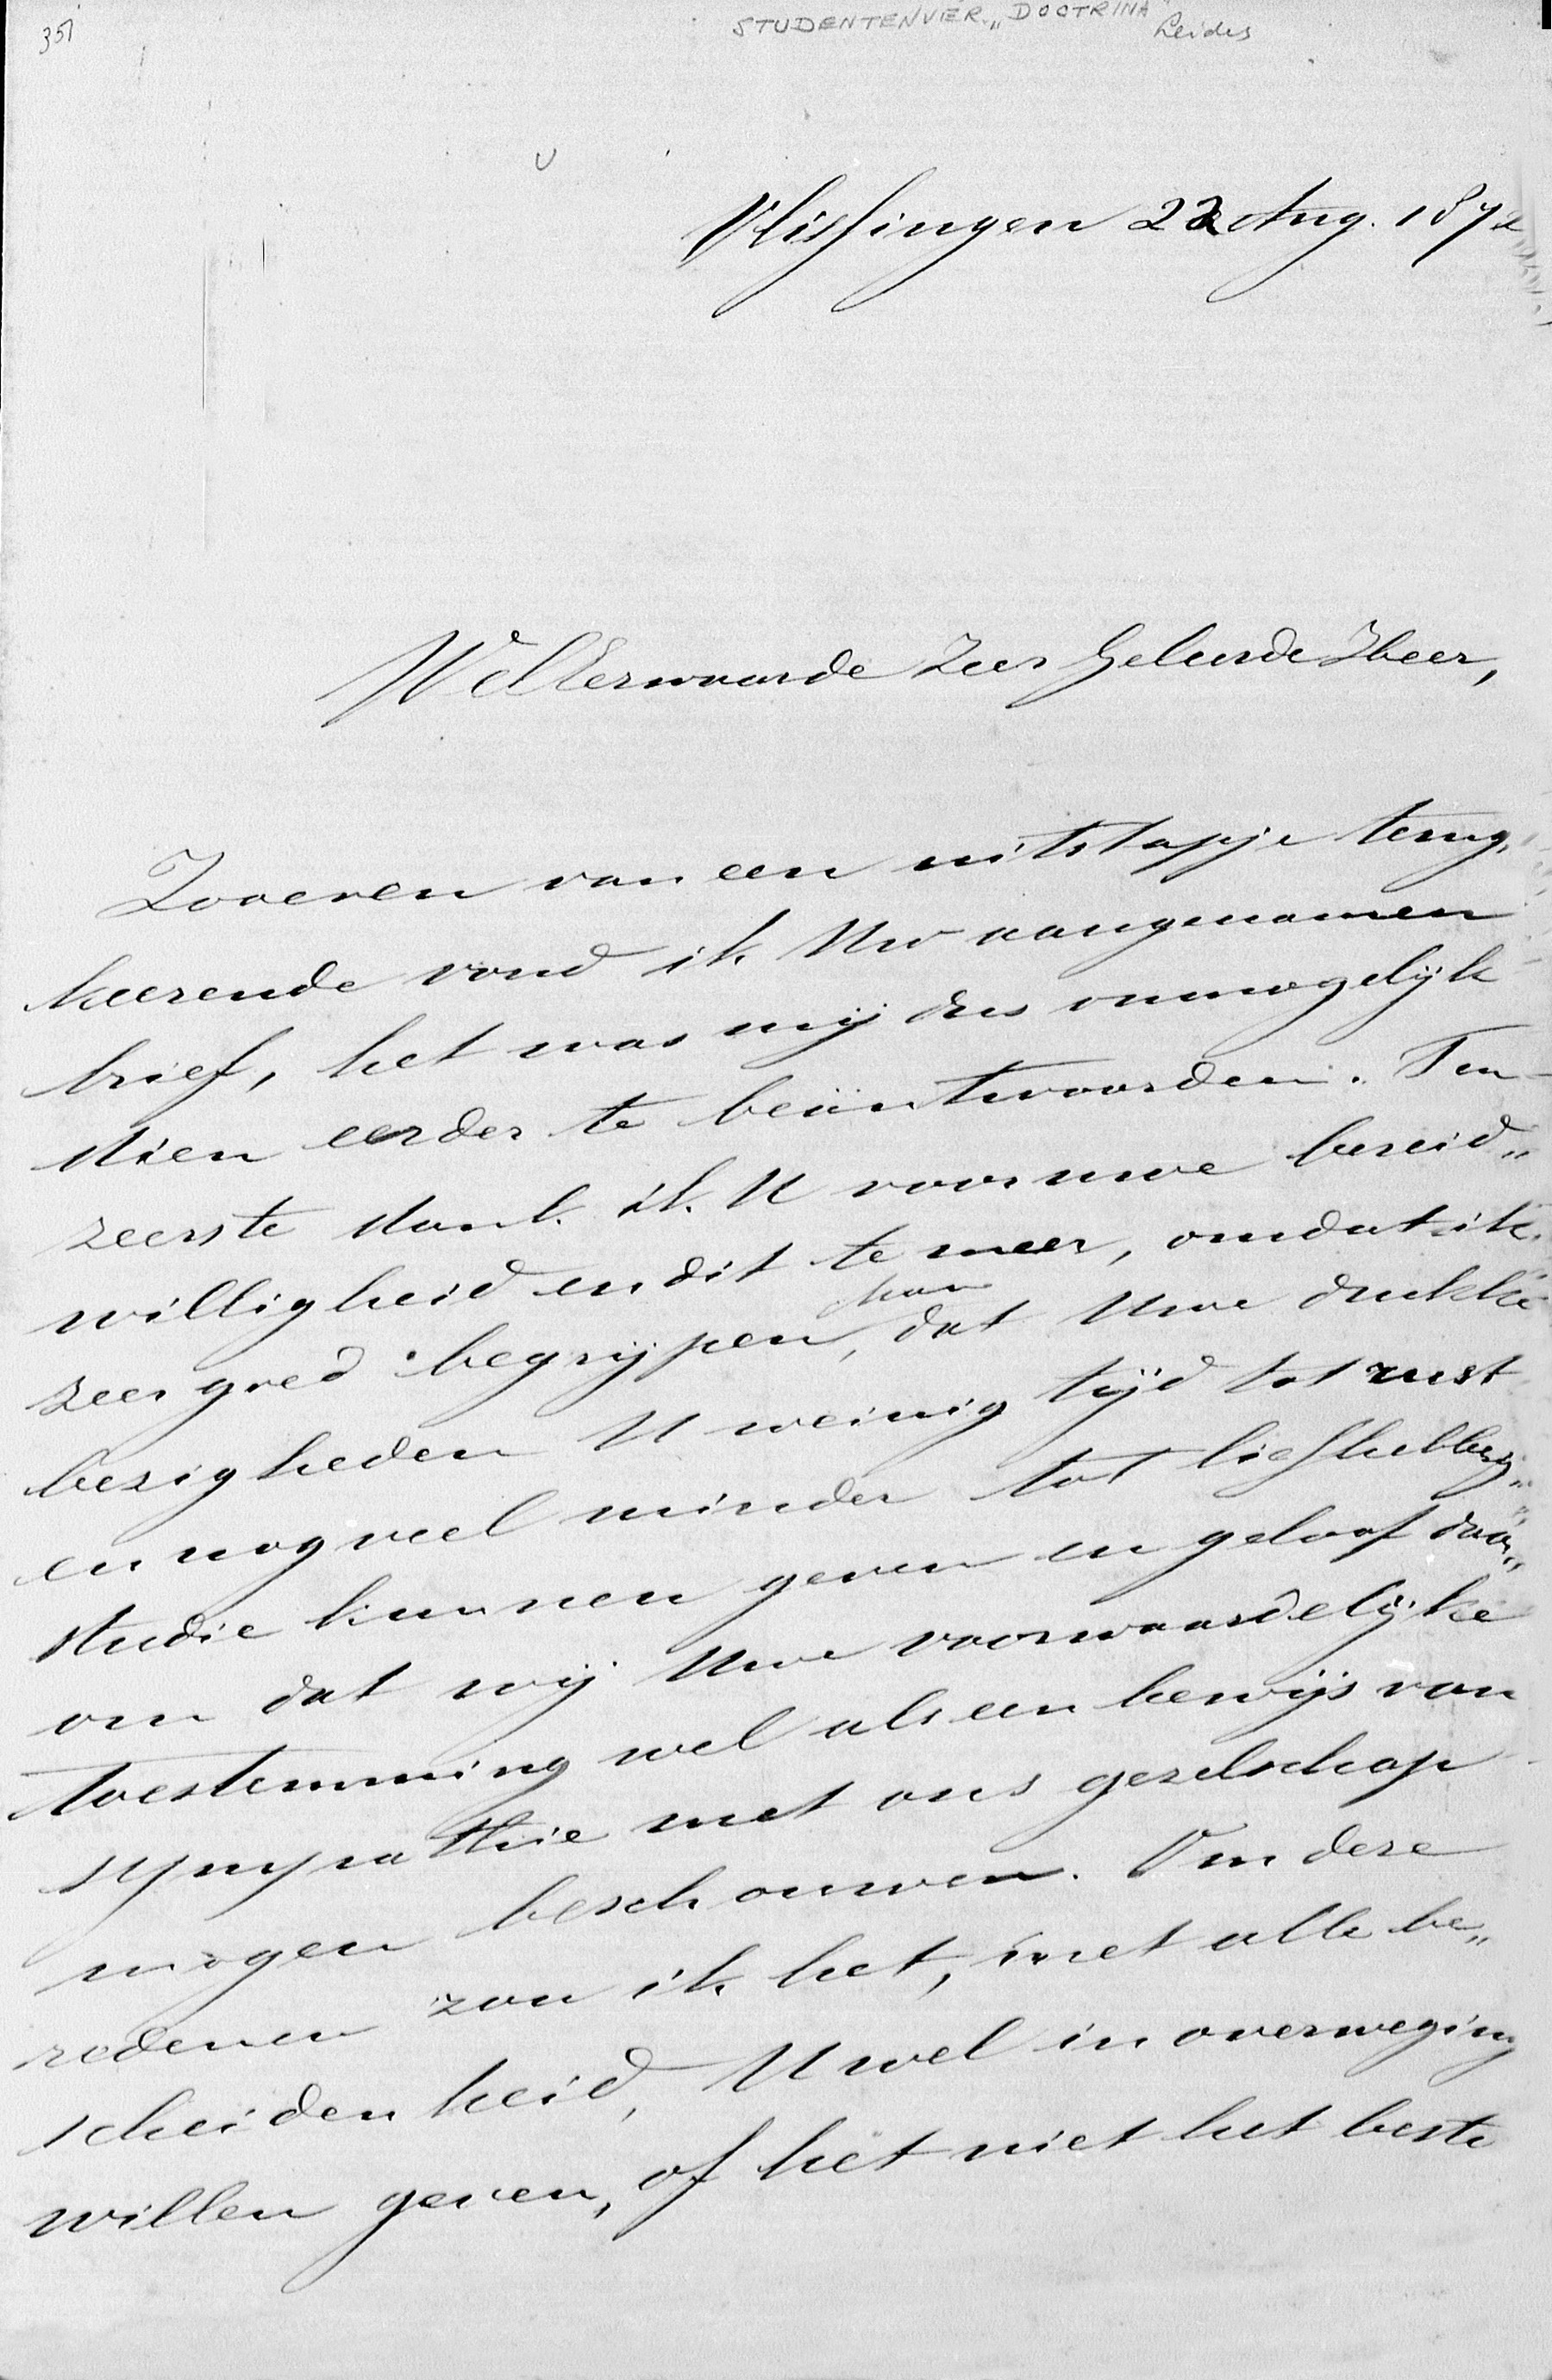 351
STUDENTENVER. „DOCTRINA"
Leiden
U
Vlissingen 22 Aug. 1872
WelEerwaarde Zeer Geleerde Heer,
Zooeven van een uitstapje terug„
keerende vond ik Uw aangenamen
brief, het was mij dus onmogelijk
dien eerder te beäntwoorden. Ten
zeerste dank ik U voor uwe bereid„
willigheid en dit te meer, omdat ik
kan
zeer goed begrijpen, dat Uwe drukke
bezigheden U weinig tijd tot rust
en nog veel minder tot liefhebberij„
studie kunnen geven en geloof daar„
om dat wij Uwe voorwaardelijke
toestemming wel als een bewijs van
sympathie met ons gezelschap
mogen beschouwen. Om deze
redenen zou ik het, met alle be„
scheidenheid, U wel in overweging
willen geven, of het niet het beste